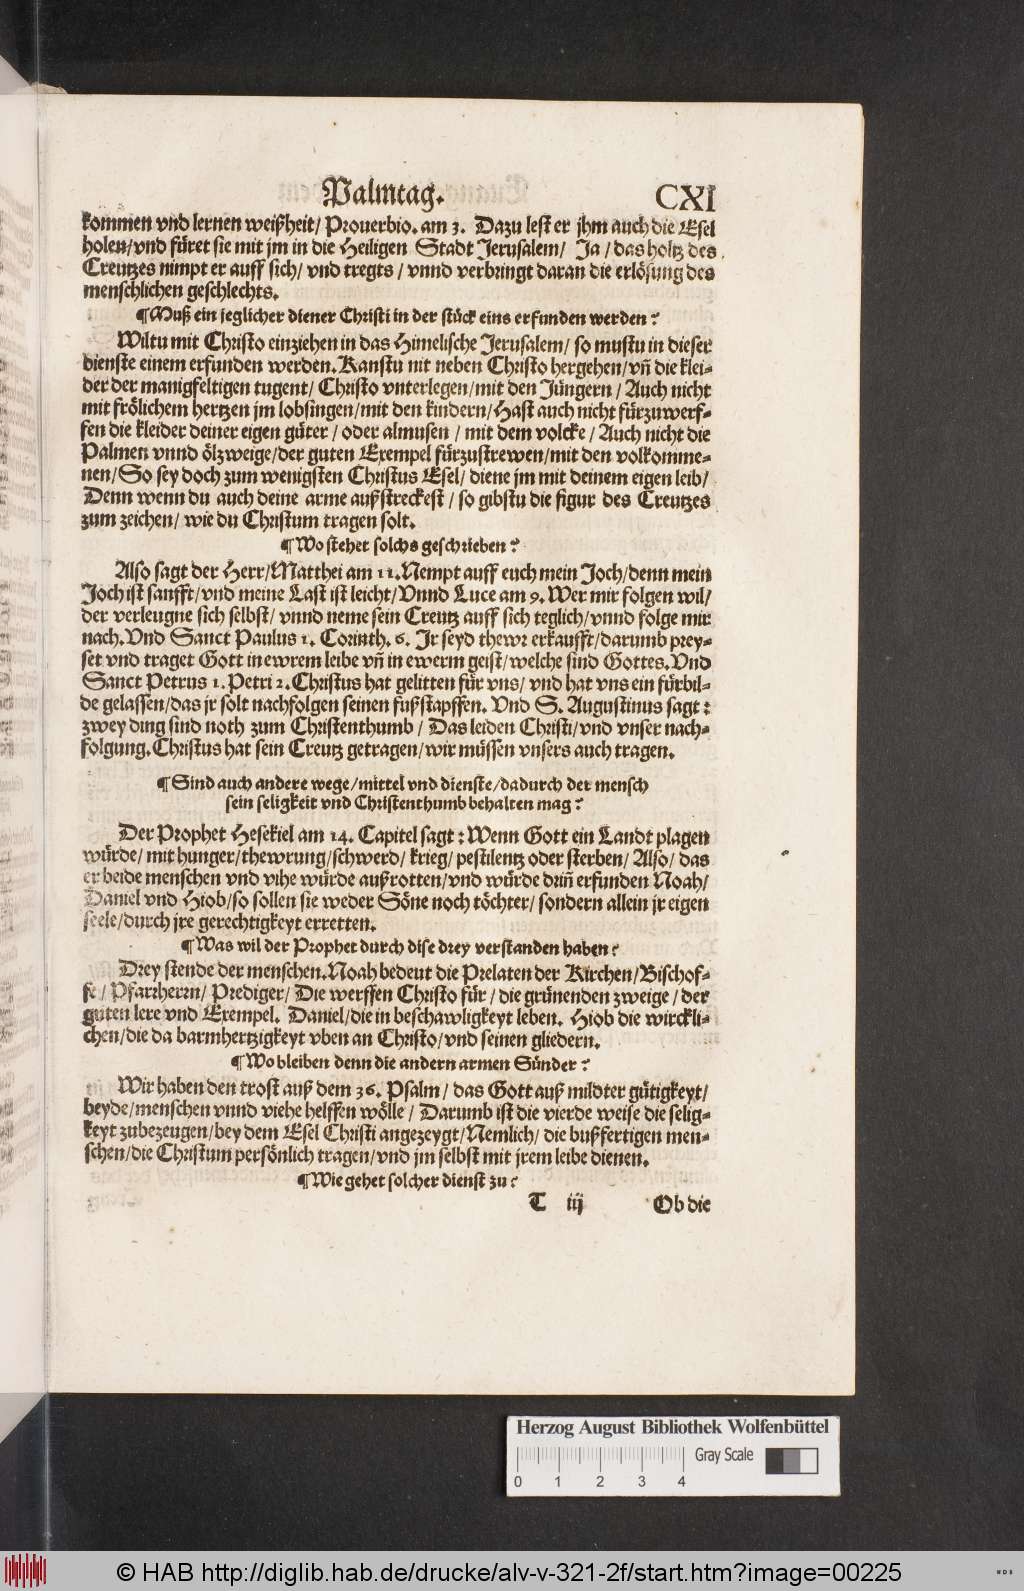 Palmtag. CXI
kommen vnd lernen weißheit/ Prouerbio. am 3. Dazu lest er jhm auch die Esel
holen/vnd füret sie mit jm in die Heiligen Stadt Jerusalem/ Ja/das holtz des
Creutzes nimpt er auff sich/ vnd tregts / vnnd verbringt daran die erlösung des
menschlichen geschlechts.
¶Muß ein jeglicher diener Christi in der stück eins erfunden werden?
Wiltu mit Christo einziehen in das Himelische Jerusalem/ so mustu in dieser
dienste einem erfunden werden. Kanstu nit neben Christo hergehen/vñ die klei-
der der manigfeltigen tugent/ Christo vnterlegen/mit den Jüngern / Auch nicht
mit frölichem hertzen jm lobsingen/mit den kindern/Hast auch nicht fürzuwerf-
fen die kleider deiner eigen güter / oder almusen / mit dem volcke / Auch nicht die
Palmen vnnd ölzweige/der guten Exempel fürzustrewen/mit den volkomme-
nen/So sey doch zum wenigsten Christus Esel/ diene jm mit deinem eigen leib/
Denn wenn du auch deine arme außstreckest / so gibstu die figur des Creutzes
zum zeichen/ wie du Christum tragen solt.
¶Wo stehet solchs geschrieben?
Also sagt der Herr/Matthei am 11. Nempt auff euch mein Joch/denn mein
Joch ist saufft/vnd meine Last ist leicht/Vnnd Luce am 9. Wer mir folgen wil/
der verleugne sich selbst/ vnnd neme sein Creutz auff sich teglich/vnnd folge mir
nach. Vnd Sanct Paulus 1. Corinth. 6. Jr seyd thewr erkaufft/darumb prey-
set vnd traget Gott in ewrem leibe vñ in ewerm geist/welche sind Gottes. Vnd
Sanct Petrus 1. Petri 2. Christus hat gelitten für vns/ vnd hat vns ein fürbil-
de gelassen/das jr solt nachfolgen seinen fußstapffen. Vnd S. Augustinus sagt:
zwey ding sind noth zum Christenthumb / Das leiden Christi/vnd vnser nach-
folgung. Christus hat sein Creutz getragen/wir müssen vnsers auch tragen.
¶Sind auch andere wege/mittel vnd dienste/dadurch der mensch
sein seligkeit vnd Christenthumb behalten mag?
Der Prophet Hesekiel am 14. Capitel sagt: Wenn Gott ein Landt plagen
würde/ mit hunger/thewrung/schwerd/ krieg/ pestilentz oder sterben/ Also/ das
er beide menschen vnd vihe würde außrotten/vnd würde driñ erfunden Noah/
Daniel vnd Hiob/so sollen sie weder Söne noch töchter/ sondern allein jr eigen
seele/durch jre gerechtigkeyt erretten.
¶Was wil der Prophet durch dise drey verstanden haben?
Drey stende der menschen. Noah bedeut die Prelaten der Kirchen/Bischof-
fe/ Pfarrherrn/ Prediger/ Die werffen Christo für / die grünenden zweige / der
guten lere vnd Exempel. Daniel/die in beschawligkeyt leben. Hiob die wirckli-
chen/die da barmhertzigkeyt vben an Christo/vnd seinen gliedern.
¶Wo bleiben denn die andern armen Sünder?
Wir haben den trost auß dem 36. Psalm/ das Gott auß mildter gütigkeyt/
beyde/menschen vnnd viehe helffen wölle / Darumb ist die vierde weise die selig-
keyt zubezeugen/bey dem Esel Christi angezeygt/Nemlich/ die bußfertigen men-
schen/die Christum persönlich tragen/vnd jm selbst mit jrem leibe dienen.
¶Wie gehet solcher dienst zu?
T iij Ob die
Herzog August Bibliothek Wolfenbüttel
Gray Scale
0 1 2 3 4
© HAB http://diglib.hab.de/drucke/alv-v-321-2f/start.htm?image=00225